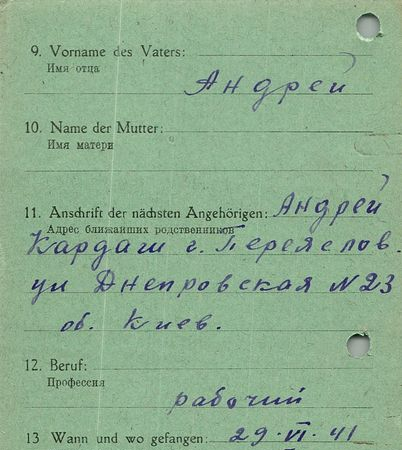 9. Vorname des Vaters:
Имя отца
Андрей
10. Name der Mutter:
Имя матери
11. Anschrift der nächsten Angehörigen: Андрей
Адрес ближайших родственников
Кардаш г. Переяслов.
ул Днепровская N 23
об. Киев.
12. Beruf:
Профессия
рабочий
13 Wann und wo gefangen: 29·VI·41